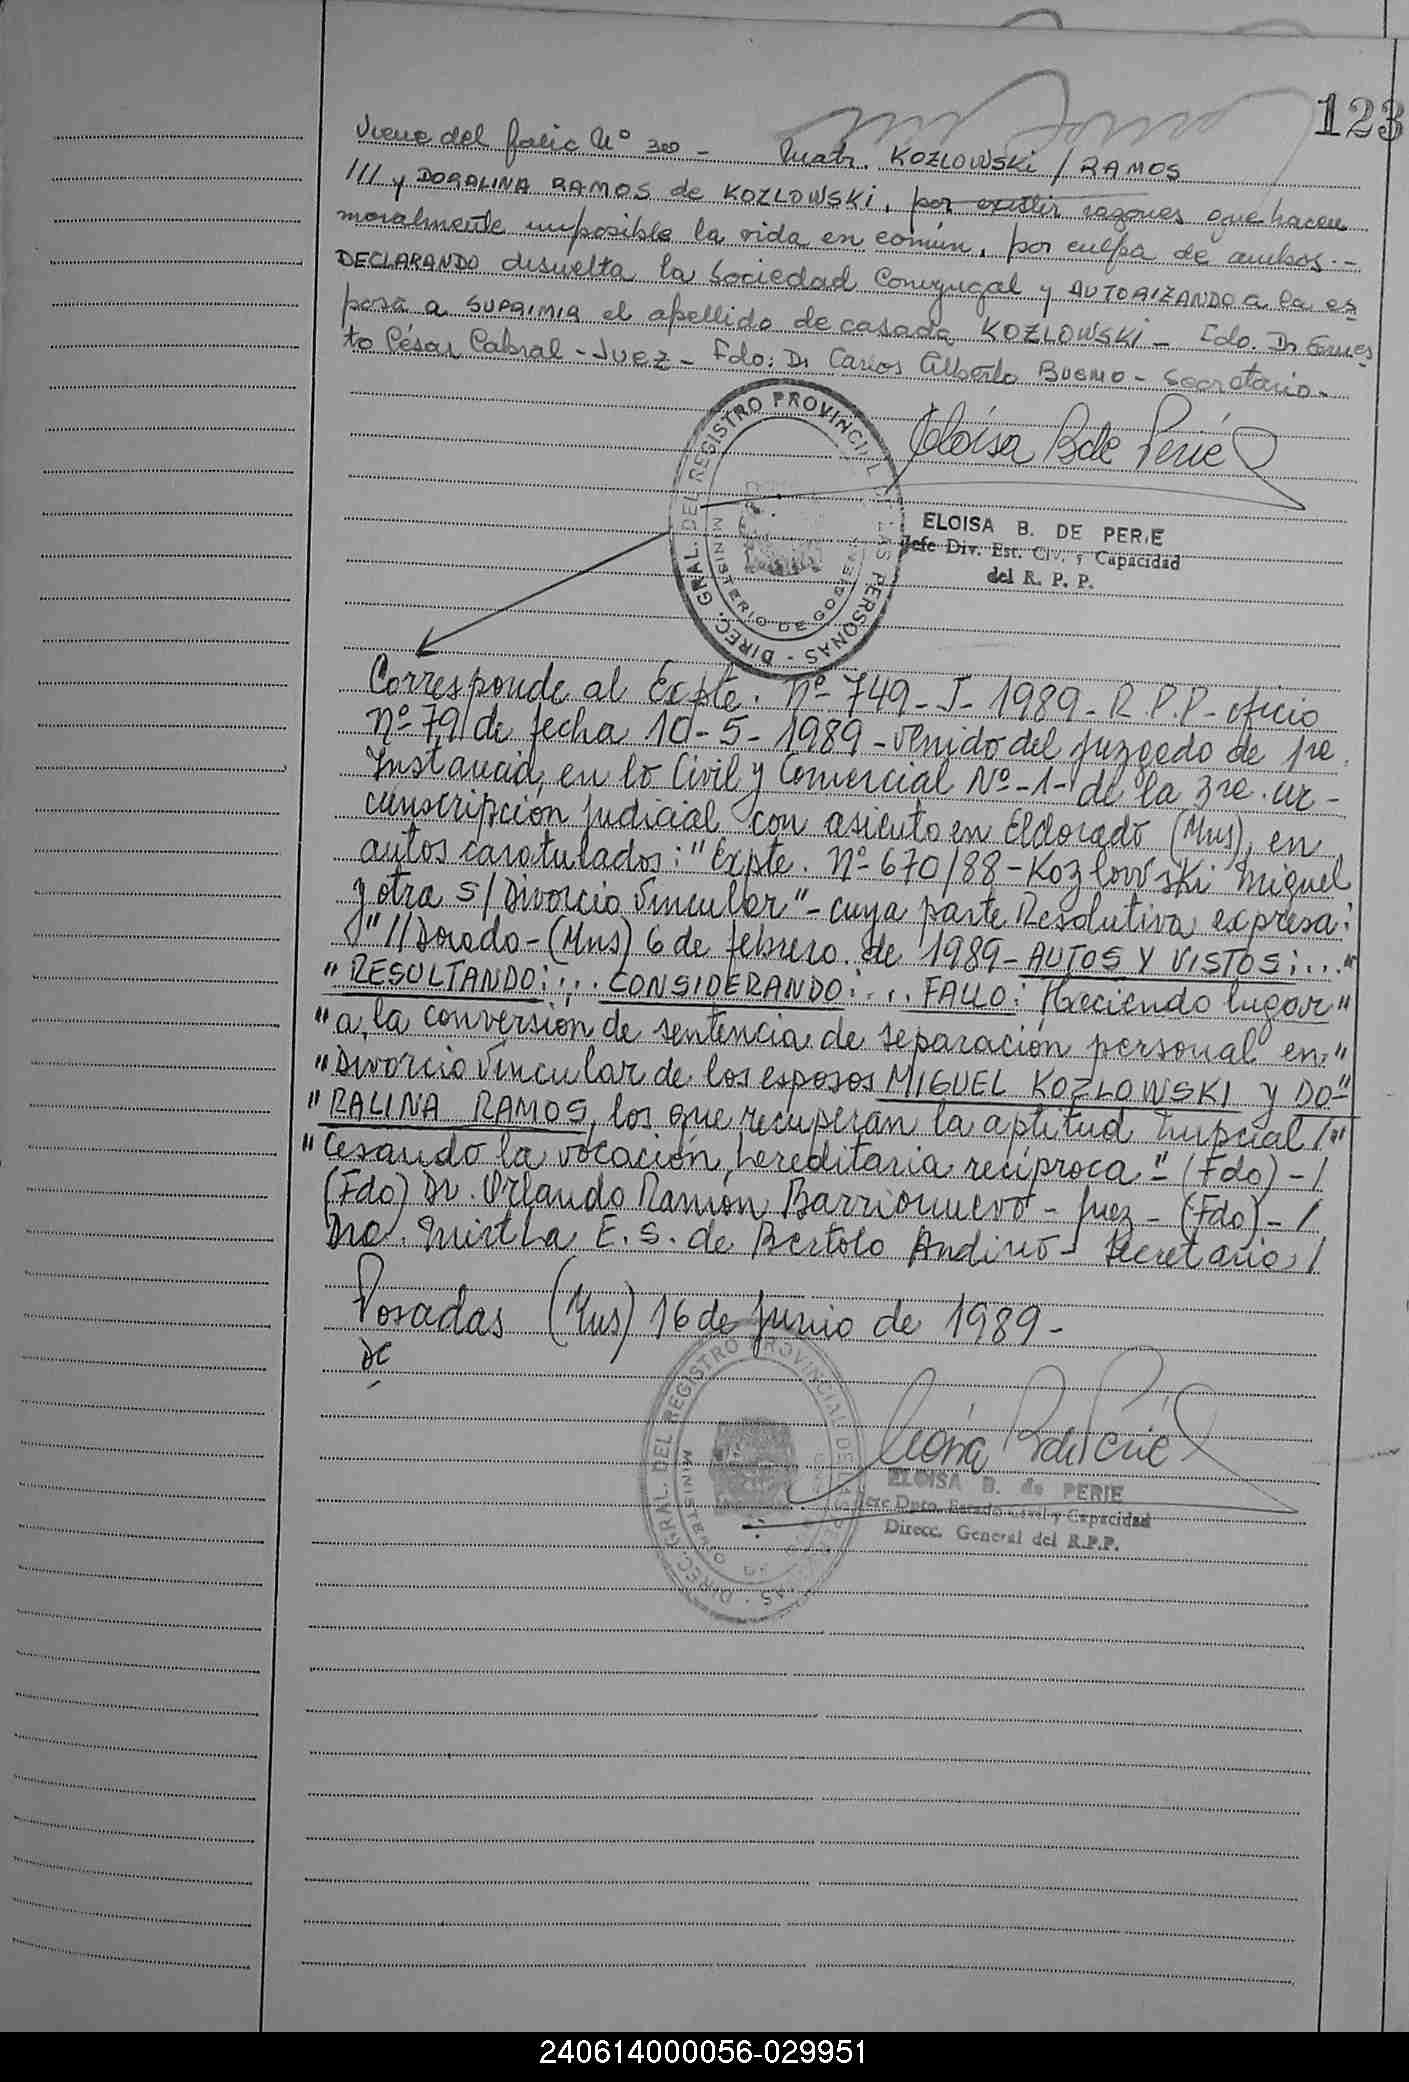 123
Viene del folio Nº 300 - Matr. KOZLOWSKi / RAMOS
/// y DORALINA RAMOS de KOZLOWSKi, por existir razones que hacen
moralmente imposible la vida en común, por culpa de ambos.-
DECLARANDO disuelta la Sociedad Conyugal y AUTORIZANDO a la es
posa a SUPRIMIR el apellido de casada KOZLOWSKi - Fdo. Dr Ernes
to César Cabral - Juez - Fdo: Dr Carlos Alberto BUENO - Secretario -
DIREC. GRAL. DEL REGISTRO PROVINCIAL DE LAS PERSONAS
MINISTERIO DE GOBIERNO
Eloísa B de Perié
ELOISA B. DE PERIE
Jefe Div. Est. Civ. y Capacidad
del R. P. P.
Corresponde al Expte. Nº 749 - J - 1989 - R.P.P - oficio
Nº 79 de fecha 10-5-1989 - venido del Juzgado de 1re.
Instancia, en lo Civil y Comercial Nº -1- de la 3re. cir -
cunscripción judicial con asiento en Eldorado (Mns), en
autos caratulados: "Expte. Nº 670/88 - Kozlowski Miguel
y otra S/ Divorcio Vincular" - cuya parte Resolutiva expresa:
"//Dorado - (Mns) 6 de febrero de 1989 - AUTOS Y VISTOS:..."
"RESULTANDO:... CONSIDERANDO:... FALLO: Haciendo lugar"
"a la conversión de sentencia de separación personal en"
"Divorcio Vincular de los esposos MIGUEL KOZLOWSKI y DO-"
"RALINA RAMOS, los que recuperan la aptitud nupcial /"
"Cesando la vocación hereditaria recíproca -" (Fdo) - /
(Fdo) Dr. Orlando Ramón Barrionuevo - Juez - (Fdo) - /
Dra. Mirtha E. S. de Bertolo Andino - Secretaria /
Posadas (Mns) 16 de Junio de 1989 -
DIREC. GRAL. DEL REGISTRO PROVINCIAL DE LAS PERSONAS
B de Perié
ELOISA B. de PERIE
Jefe Dpto. Estado Civil y Capacidad
Direcc. General del R.P.P.
240614000056-029951